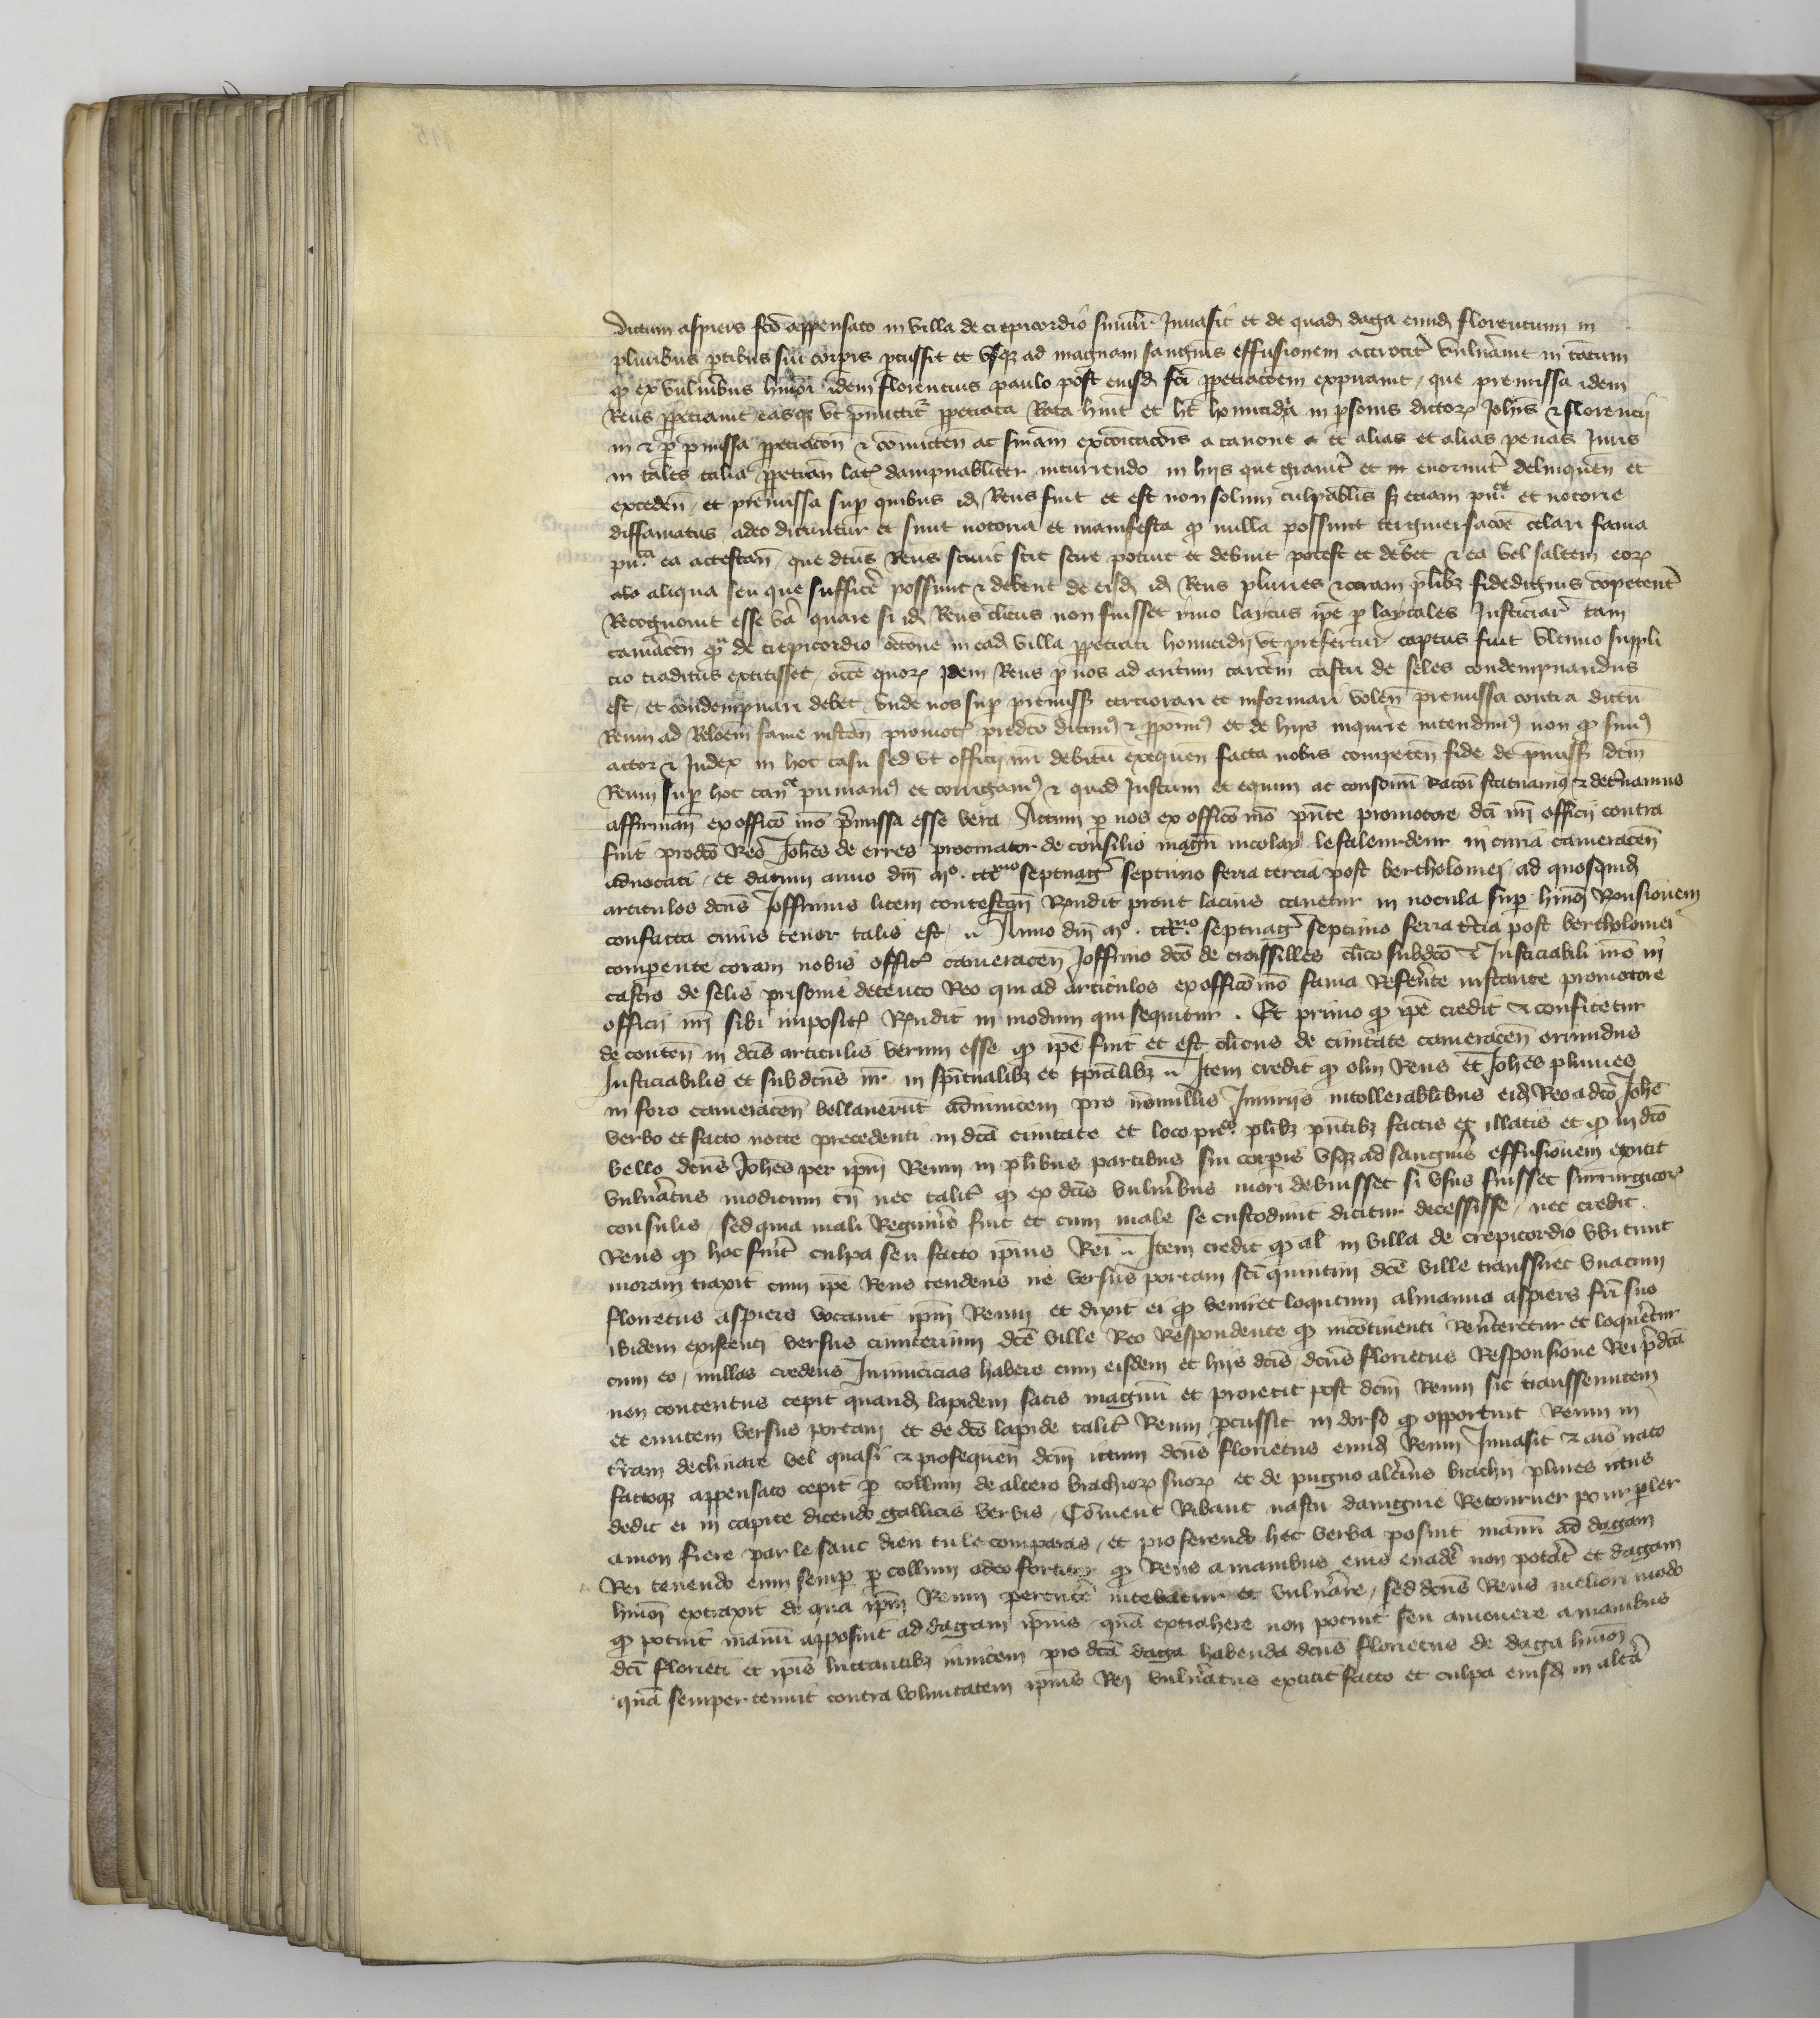 dictum aspiers fco appensato in villa de crepicordio similr Invasit et de quad daga eund florentium in
pluribus ptibus sui corpis pcussit et vsqz ad magnam sanguis effusionem attrocit vulnavit in tantum
qp ex vulnibus hmoi idem florentius paulo post eiusd fci ppetracoem expiravit / que premissa idem
Reus ppetravit easqz vt pmittit ppetrata Rata huit et ht homicidia in psonis dictorz Johis & florencij
in & p pmissa ppetracon & comicten ac sniam excoicacois a canone & alias et alias penas Juris
in tales talia ppetran lat dampnabiliter incurrendo in hijs que gravit et in enormit delinquen et
exceden / et premissa sup quibus id Reus fuit et est non solum culpabilis sz etiam puce et notorie
diffamatus adeo dicuntur et sunt notoria et manifesta qp nulla possunt tergiversacoe celari fama
puca ea attestan que dcus Reus scivit scit scire potuit et debuit potest et debet & ea vel saltem eorz
alio aliqua seu que suffice possunt & debent de eisd id Reus pluries & coram plibz fidedignis copetent
Recognovit esse va quare si id Reus clicus non fuisset ymo laycus ipe p laycales Justiciar tam
camacen qp de crepicordio occone in ead villa ppetrati homicidij vt prefertur captus fuit vltimo suppli
cio traditus extitisset / occe quorz Idem Reus p nos ad artum carcem castri de seles condempnandus
est / et condempnari debet / vnde nos sup premiss certiorari et informari volen premissa contra dictu
Reum ad Reloem fame insten promot predco dicim & ponim et de hijs inquire intendim non qp sim
actor & Judex in hoc casu sed vt officij nri debitu exequen facta nobis competen fide de pmiss dcm
Reum sup hoc cance puniam et corrigam & quod Justum et equum ac consonu Racoi statuamq & detnamus
affirman ex officio nro pmissa esse vera Actum p nos ex officio nro pnte promotore dci nri officij contra
fuit predco Reo Johes de erres procurator de consilio magri nicolay lefaleurdeur in curia cameracen
advocati / et datum anno dni mo. ccc mo septuag septimo feria tercia post bertholomei / ad quosquid
articulos dcus Joffrinus litem contestan Rndit prout lacius cavetur in nocula sup hmoi Ronsionem
confecta cuius tenor talis est / Anno dni mo. ccc mo septuag septimo feria tcia post bertholomei
compente coram nobis offic cameracen Joffrino dco de croissilles clico subdco & Justiciabili nro in
castro de selis prisonie detento Reo qui ad articulos ex officio nro fama Refente instante promotore
officij nri sibi imposit Rndit in modum qui sequitur . Et primo qp ipe credit & confitetur
de conten in dcis articulis verum esse qp ipe fuit et est clicus de civitate cameracen oriundus
Justiciabilis et subdcus nr in spitualibz et tpralibz Item credit qp olim Reus et Johes pluries
in foro cameracen bellaverut adinvicem pro nonnullis Iniurijs intollerabilibus eid Reo a dco Johe
verbo et facto nocte precedenti in dca civitate et loco pico plibz pntibz factis et illatis et qp in dco
bello dcus Johes per ipm Reum in plibus partibus sui corpis vsqz ad sanguis effusionem extitit
vulnatus modicum tn nec talit qp ex dcis vulnibus mori debuisset si vsus fuisset surrurgicorz
consilis / sed quia mali Regiminis fuit et cum male se custodiuit dicitur decessisse / nec credit
Reus qp hoc fuit culpa seu facto ipius Rei Item credit qp al in villa de crepicordio vbi tunc
moram traxit cum ipe Reus tendens ire versus portam sci quintini dce ville transsiret vnacum
florietus aspiers vocavit ipm Reum et dixit ei qp veniret loqutum almanna aspiers fri suo
ibidem existenti versus cimiterium dce ville Reo Respondente qp incontinenti Renteretur et loquetur
cum eo / nullas credens Inimicicias habere cum eisdem et hijs dcis / dcus florietus Responsione Rei pdca
non contentus cepit quand lapidem satis magnu et proiecit post dcm Reum sic transseuntem
et euntem versus portam et de dco lapide talit Reum pcussit in dorso qp opportuit Reum in
tram declinare vel quasi & prosequen dcm ictum dcus florietus eund Reum Invasit & aio irato
factoqz appensato cepit p collum de altero brachiorz suorz et de pugno altius brachij plures ictus
dedit ei in capite dicendo gallicis verbis / Coment Ribaut nastu daingnie Retourner pour pler
a mon frere par le sanc dieu tu le comparas / et proferendo hec verba posuit manu ad dagam
Rei tenendo eum semp p collum adeo fortit qp Reus a manibus eius evade non potat et dagam
hmoi extraxit de qua ipm Reum percute nitebatur et vulnare / sed dcus Reus meliori modo
qp potuit manu apposuit ad dagam ipius qua extrahere non potuit seu amovere a manibus
dci florieti et ipis luctantibz invicem pro dca daga habenda dcus florietus de daga hmoi
qua semper tenuit contra voluntatem ipius Rei vulnatus extitit facto et culpa eiusd in alta